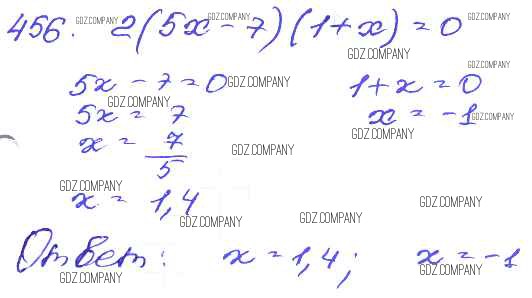 456. GDZ.COMPANY 2(5x - 7)(1 + x) = 0 GDZ.COMPANY GDZ.COMPANY
GDZ.COMPANY GDZ.COMPANY
5x - 7 = 0 GDZ.COMPANY 1 + x = 0
GDZ.COMPANY
5x = 7 x = -1 GDZ.COMPANY
GDZ.COMPANY
x = 7/5 GDZ.COMPANY
GDZ.COMPANY
x = 1,4 GDZ.COMPANY
GDZ.COMPANY GDZ.COMPANY
Ответ: x = 1,4; x = -1
GDZ.COMPANY GDZ.COMPANY